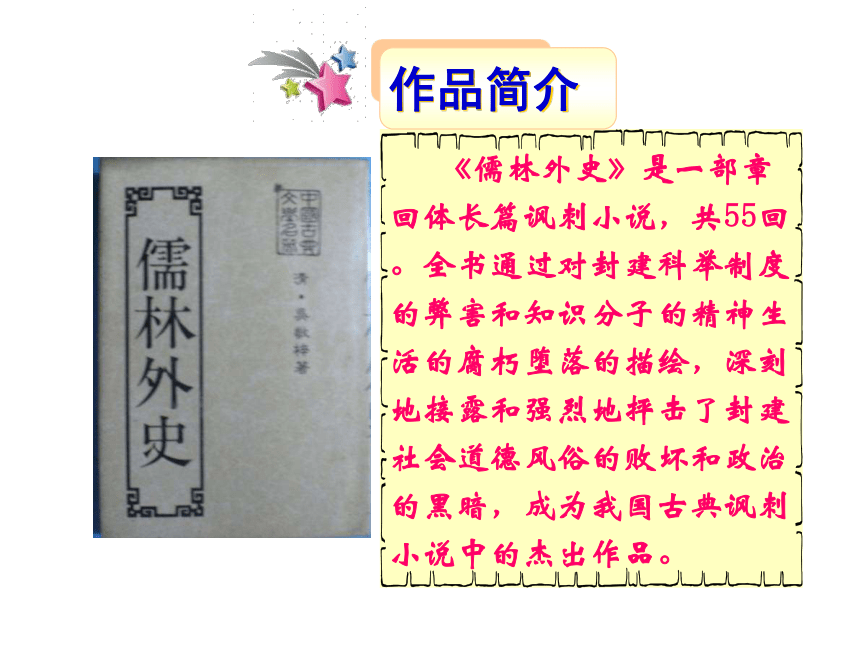 作品简介
《儒林外史》是一部章
回体长篇讽刺小说，共55回
。全书通过对封建科举制度
的弊害和知识分子的精神生
活的腐朽堕落的描绘，深刻
地接露和强烈地抨击了封建
社会道德风俗的败坏和政治
的黑暗，成为我国古典讽刺
小说中的杰出作品。
儒林外史
清·吴敬梓著